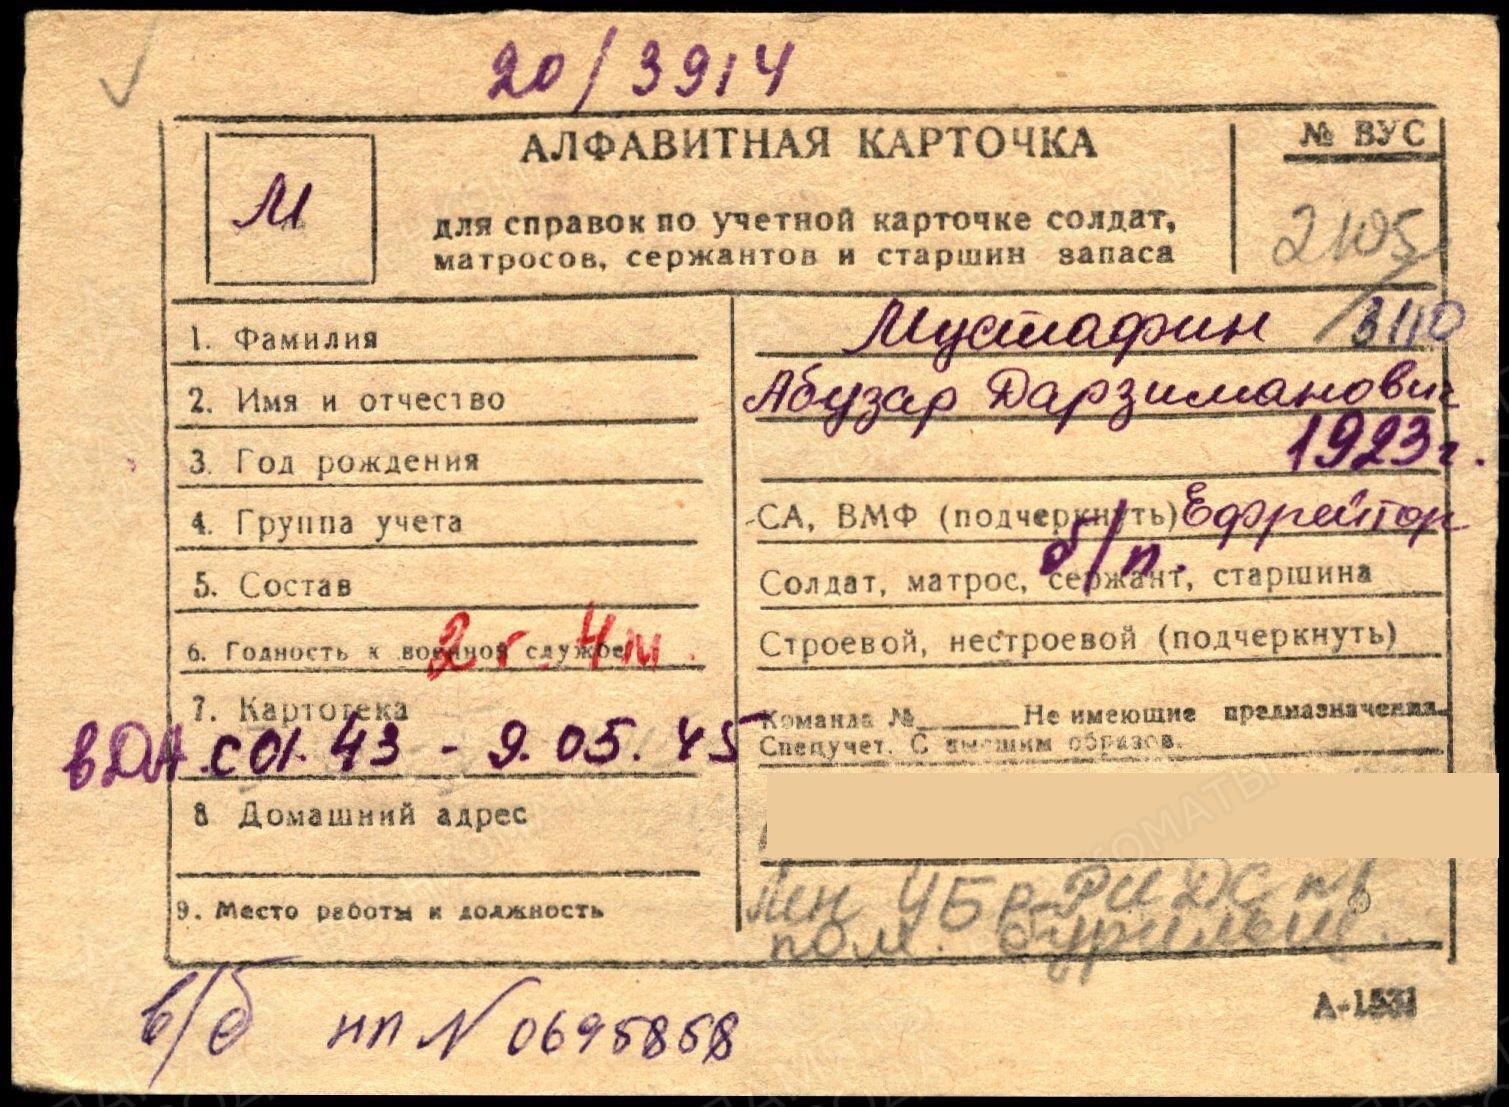 20/3914
АЛФАВИТНАЯ КАРТОЧКА
№ ВУС
М
для справок по учетной карточке солдат,
матросов, сержантов и старшин запаса
2105
1. Фамилия
Мустафин
3110
2. Имя и отчество
Абузар Дарзиманович
3. Год рождения
1923г.
4. Группа учета
СА, ВМФ (подчеркнуть) Ефрейтор
б/п.
5. Состав
Солдат, матрос, сержант, старшина
6. Годность к военной службе
2г. 4м.
Строевой, нестроевой (подчеркнуть)
7. Картотека
Команда № Не имеющие предназначения
Спецучет. С высшим образов.
в ДА. с 01. 43 - 9. 05. 45
8 Домашний адрес
9. Место работы и должность
УБр
пом.
А-1531
в/б нп № 0695858